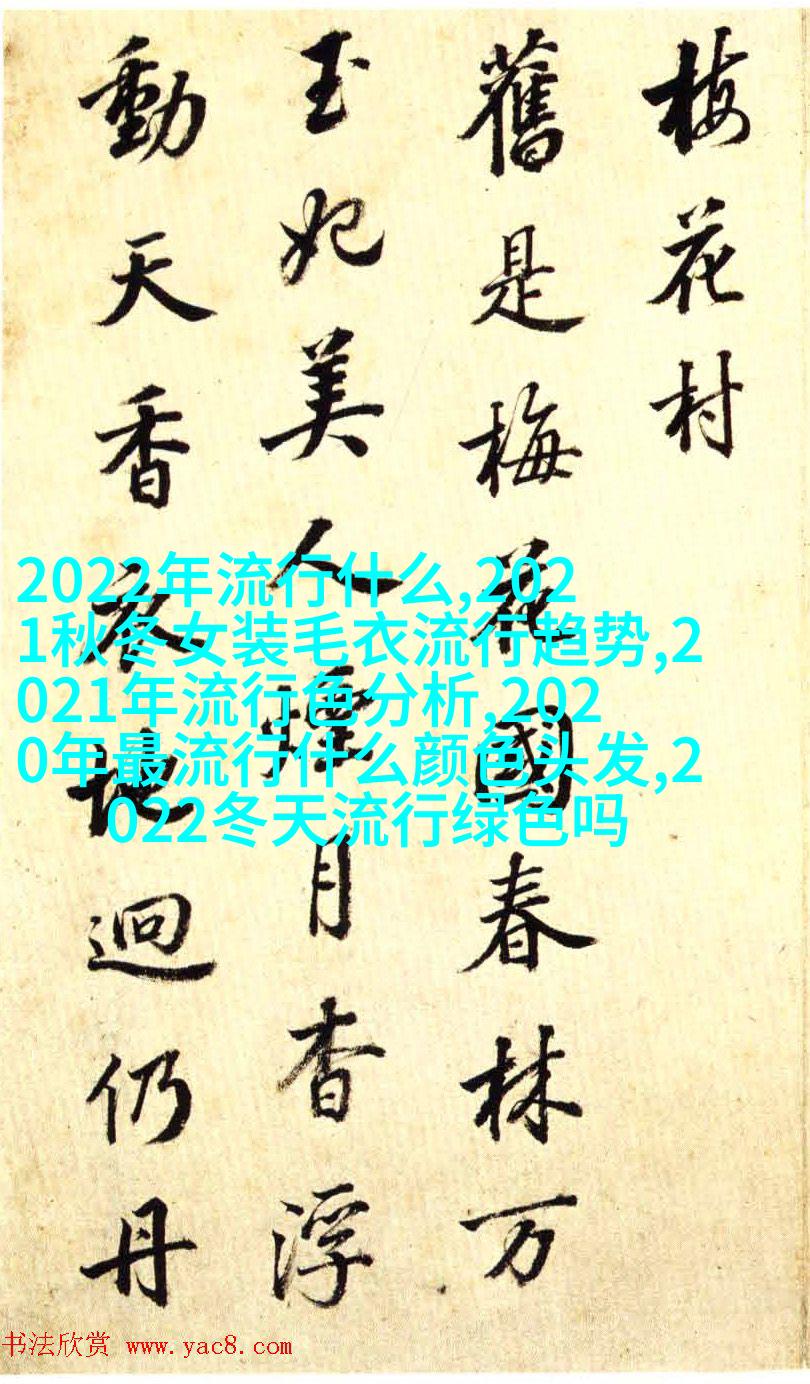 梅花村
舊是梅花國春林万
玉妃美人煙月杳浮
動天香衣地迥仍丹
2022年流行什么,202
1秋冬女装毛衣流行趋势,2
021年流行色分析,202
0年最流行什么颜色头发,2
022冬天流行绿色吗
书法欣赏 www.yac8.com